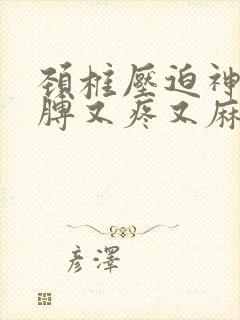 頸柱壓迫神
脾又疼又麻
彥澤